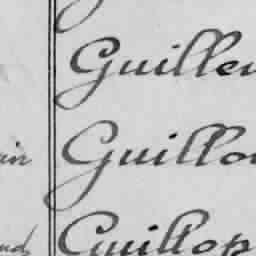 Guillem
in Guillou
nd Guillop